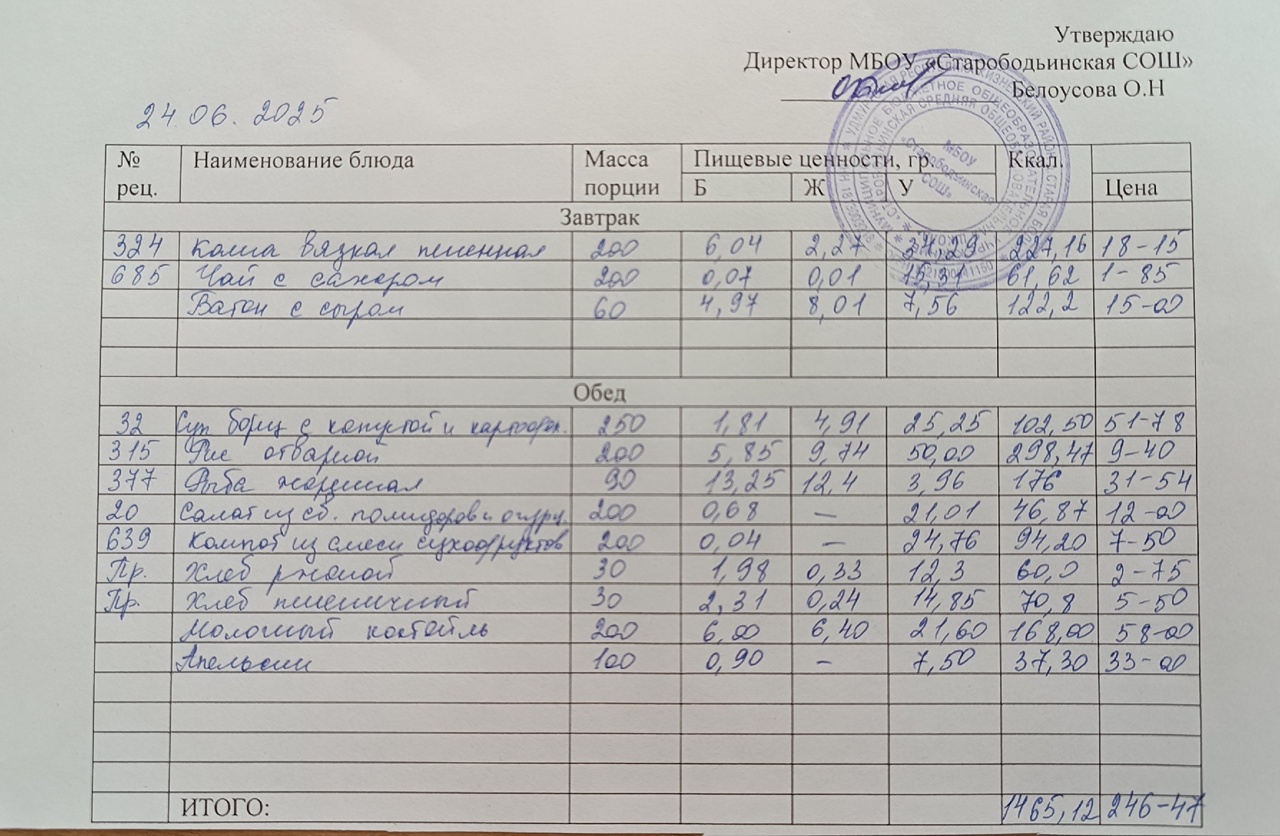 Утверждаю
Директор МБОУ «Старободьинская СОШ»
Белоусова О.Н
24.06.2025
№ рец. Наименование блюда Масса порции Пищевые ценности, гр. Ккал.
Б Ж У Цена
Завтрак
324 Каша вязкая пшенная 200 6,04 2,27 34,29 227,16 18-15
685 Чай с сахаром 200 0,07 0,01 15,31 61,62 1-85
Батон с сыром 60 4,97 8,01 7,56 122,2 15-00
Обед
32 Суп борщ с капустой и картофел. 250 1,81 4,91 25,25 102,50 51-78
315 Рис отварной 200 5,85 9,74 50,00 298,47 9-40
377 Рыба жареная 90 13,25 12,4 3,96 176 31-54
20 Салат из св. помидоров и огурц. 200 0,68 — 21,01 46,87 12-00
639 Компот из смеси сухофруктов 200 0,04 — 24,76 94,20 7-50
Пр. Хлеб ржаной 30 1,98 0,33 12,3 60,0 2-75
Пр. Хлеб пшеничный 30 2,31 0,24 14,85 70,8 5-50
Молочный коктейль 200 6,00 6,40 21,60 168,00 58-00
Апельсин 100 0,90 — 7,50 37,30 33-00
ИТОГО: 1465,12 246-47
МБОУ
«Старободьинская
СОШ»